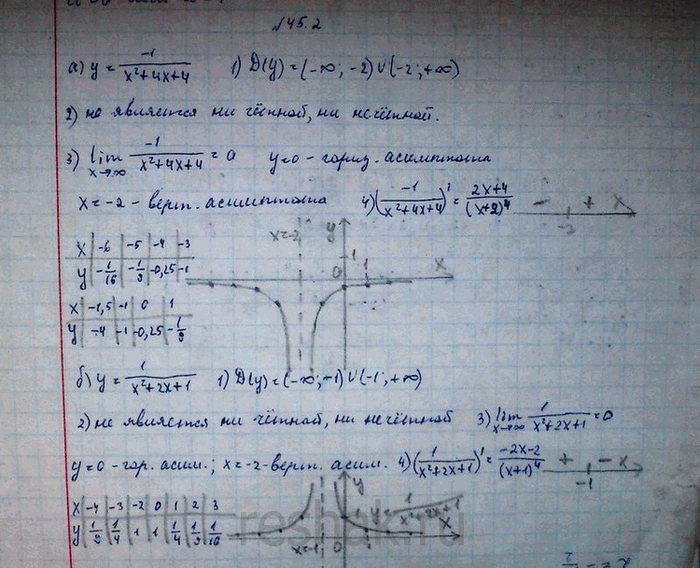 №45.2
а) y = -1/(x²+4x+4) 1) D(y) = (-∞; -2) ∪ (-2; +∞)
2) не является ни чётной, ни нечётной.
3) lim x→∞ -1/(x²+4x+4) = 0 y=0 - гориз. асимптота
x = -2 - верт. асимптота 4) (-1/(x²+4x+4))' = (2x+4)/(x+2)⁴ - + x
-2
x=-2 y
x -6 -5 -4 -3
y -1/16 -1/9 -0,25 -1
1 0 1 x
x -1,5 -1 0 1
y -4 -1 -0,25 -1/9
б) y = 1/(x²+2x+1) 1) D(y) = (-∞; -1) ∪ (-1; +∞)
2) не является ни чётной, ни нечётной 3) lim x→∞ 1/(x²+2x+1) = 0
y=0 - гор. асим.; x=-2 - верт. асим. 4) (1/(x²+2x+1))' = (-2x-2)/(x+1)⁴ + - x
-1
x -4 -3 -2 0 1 2 3
y 1/9 1/4 1 1 1/4 1/9 1/16
y 1 y = 1/(x²+2x+1)
x=-1 0 x
reshak.ru